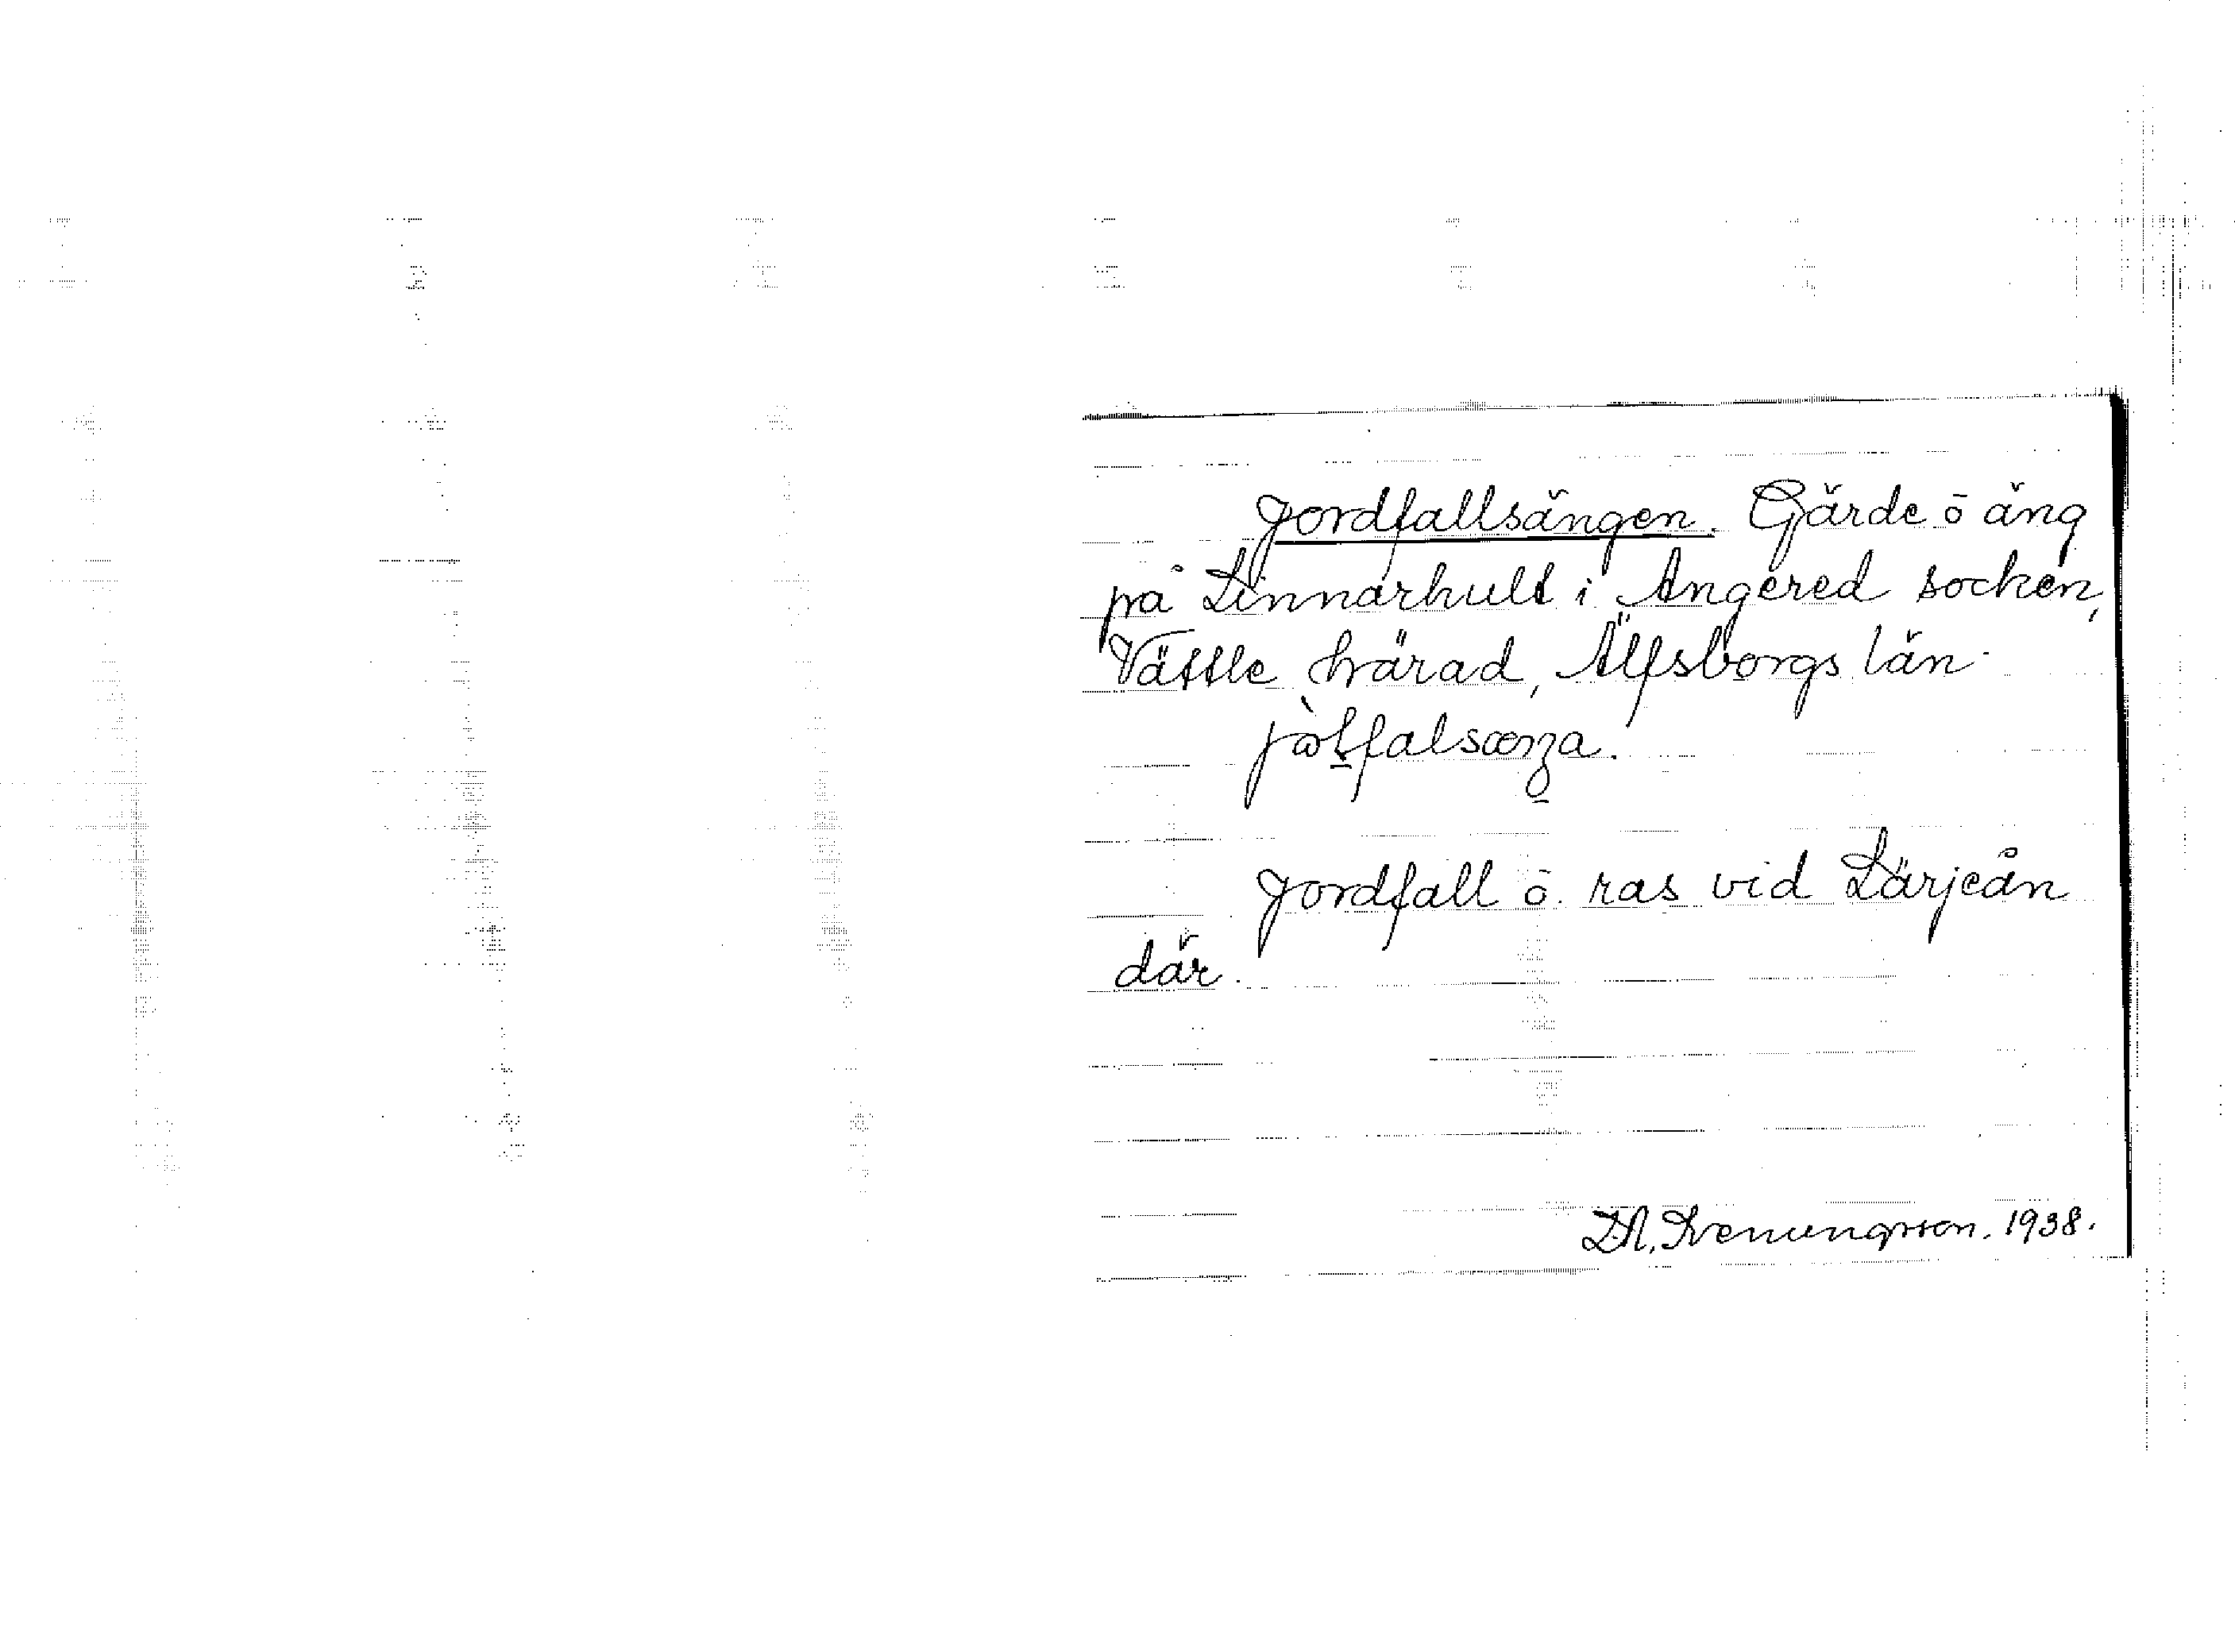 Jordfallsängen. Gärde ō äng
på Linnarhult i Angered socken,
Vättle härad, Älfsborgs län.
Jordfall ō. ras vid Lärjeån
där.
Svenungsson. 1938.